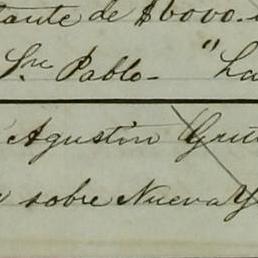 tante de $6000.
Sre Pablo- "La
Agustin
sobre Nueva Y